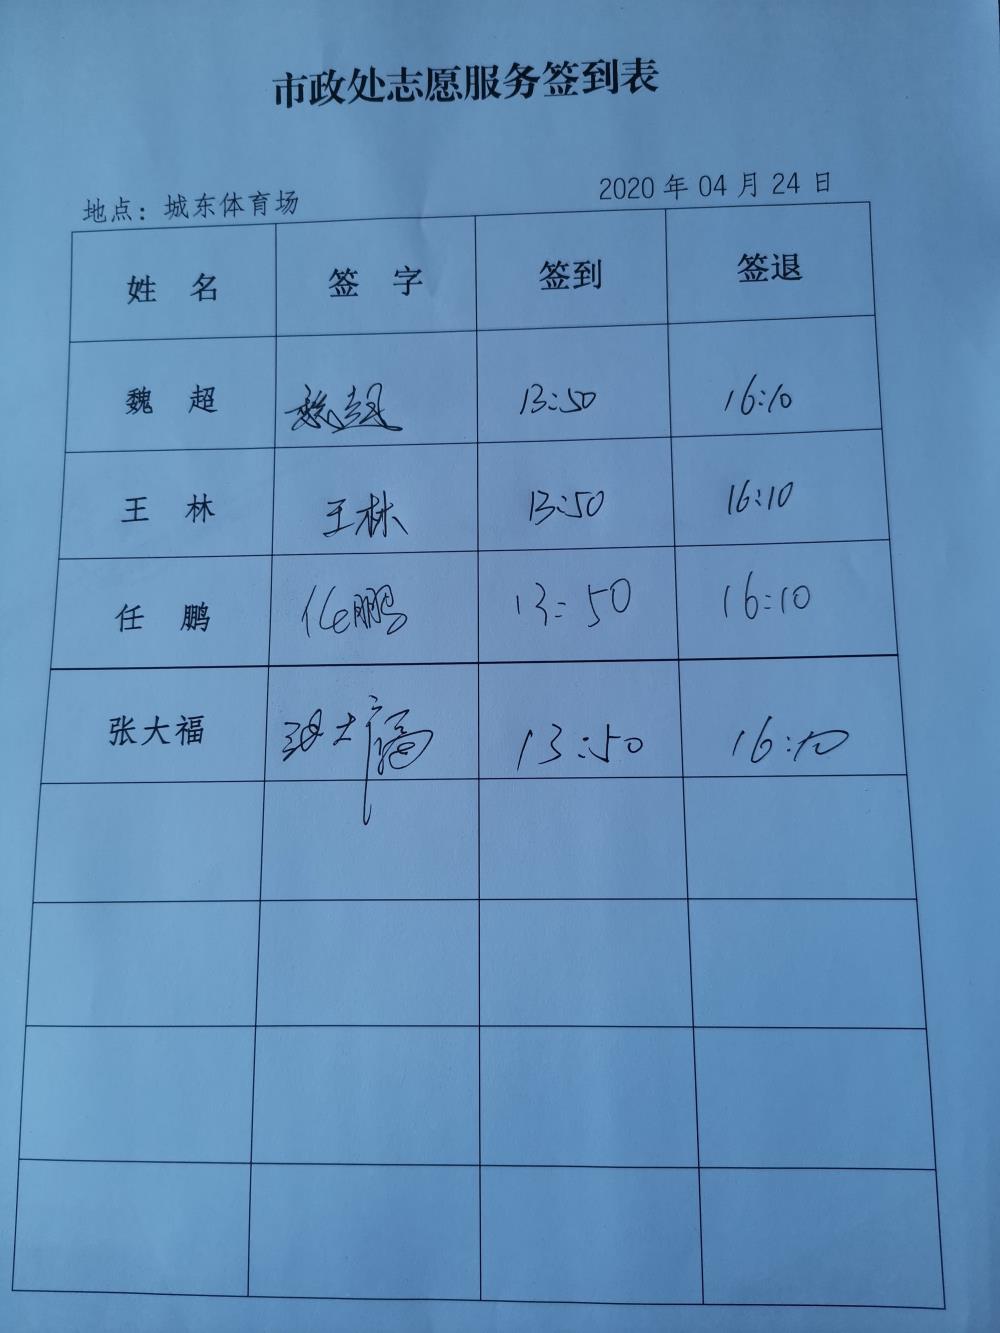 市政处志愿服务签到表
地点：城东体育场 2020 年 04 月 24 日
姓 名 签 字 签到 签退
魏 超 魏超 13:50 16:10
王 林 王林 13:50 16:10
任 鹏 任鹏 13:50 16:10
张大福 张大福 13:50 16:10